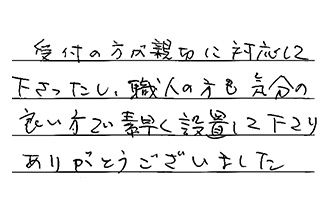 受付の方が親切に対応して
下さったし、職人の方も気分の
良い方で素早く設置して下さり
ありがとうございました